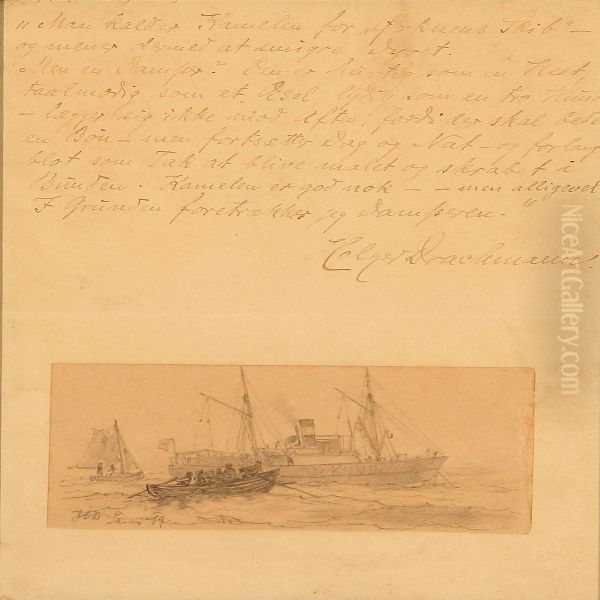 "Man kalder Kamelen for "Ørknens Skib" –
og mener dermed at smigre Dyret.
Men en Damper? Den er hurtig som en Hest,
taalmodig som et Esel, lydig som en tro Hund
– lægger sig ikke mod Aften, fordi der skal bedes
en Bøn – men fortsætter Dag og Nat – og forlanger
blot som Tak at blive malet og skrabet i
Bunden. Kamelen er god nok – – men alligevel
I Grunden foretrækker jeg Damperen."
Holger Drachmann.
HD
NiceArtGallery.com